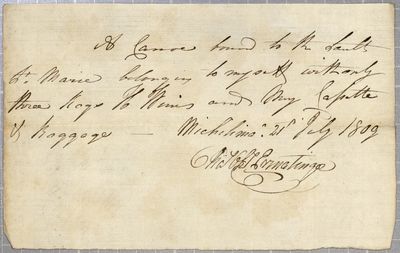 A Canoe bound to the Sault
St. Marie belonging to myself with only
three Kegs H Wines and My Casette
& Baggage — Michilima. 21st July 1809
Ermatinger